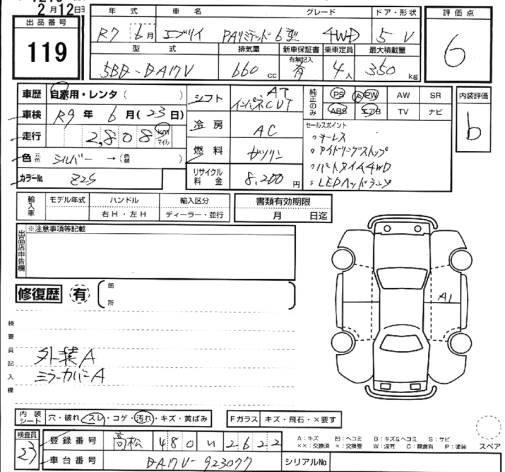 2月12日
出品番号
119
年式 車名 グレード ドア・形状 評価点
R7年6月 エブリイ PAリミテッド 6型 4WD 5 V
6
型式 排気量 新車保証書 有無記入 乗車定員 最大積載量
5BD-DA17V 660cc 有 4人 350kg
車歴 自家用・レンタ( )
シフト AT インパネCVT
純正のみ PS PW AW SR
ABS エアB TV ナビ
内装評価
b
車検 R9年6月(23日)
冷房 AC
セールスポイント
・キーレス
・アイドリングストップ
・パートタイム4WD
・LEDヘッドランプ
走行 2,808 km マイル
燃料 ガソリン
色 元色 シルバー → 色替( )
リサイクル料金 8,200円
カラーNo. Z2S
輸入車 モデル年式 ハンドル 輸入区分
年 右H・左H ディーラー・並行
書類有効期限
月 日迄
出品店申告欄
※注意事項等記載
修復歴 有 箇所
A1
検査員記入欄
外装A
ミラーカバーA
内装シート 穴・破れ・スレ・コゲ・汚れ・キズ・黄ばみ
Fガラス キズ・飛石・×要す
A:キズ B:キズ&ヘコミ S:サビ
スペア
検査員 23
登録番号 高松 480 い 2622
車台番号 DA17V-923077
シリアルNo.